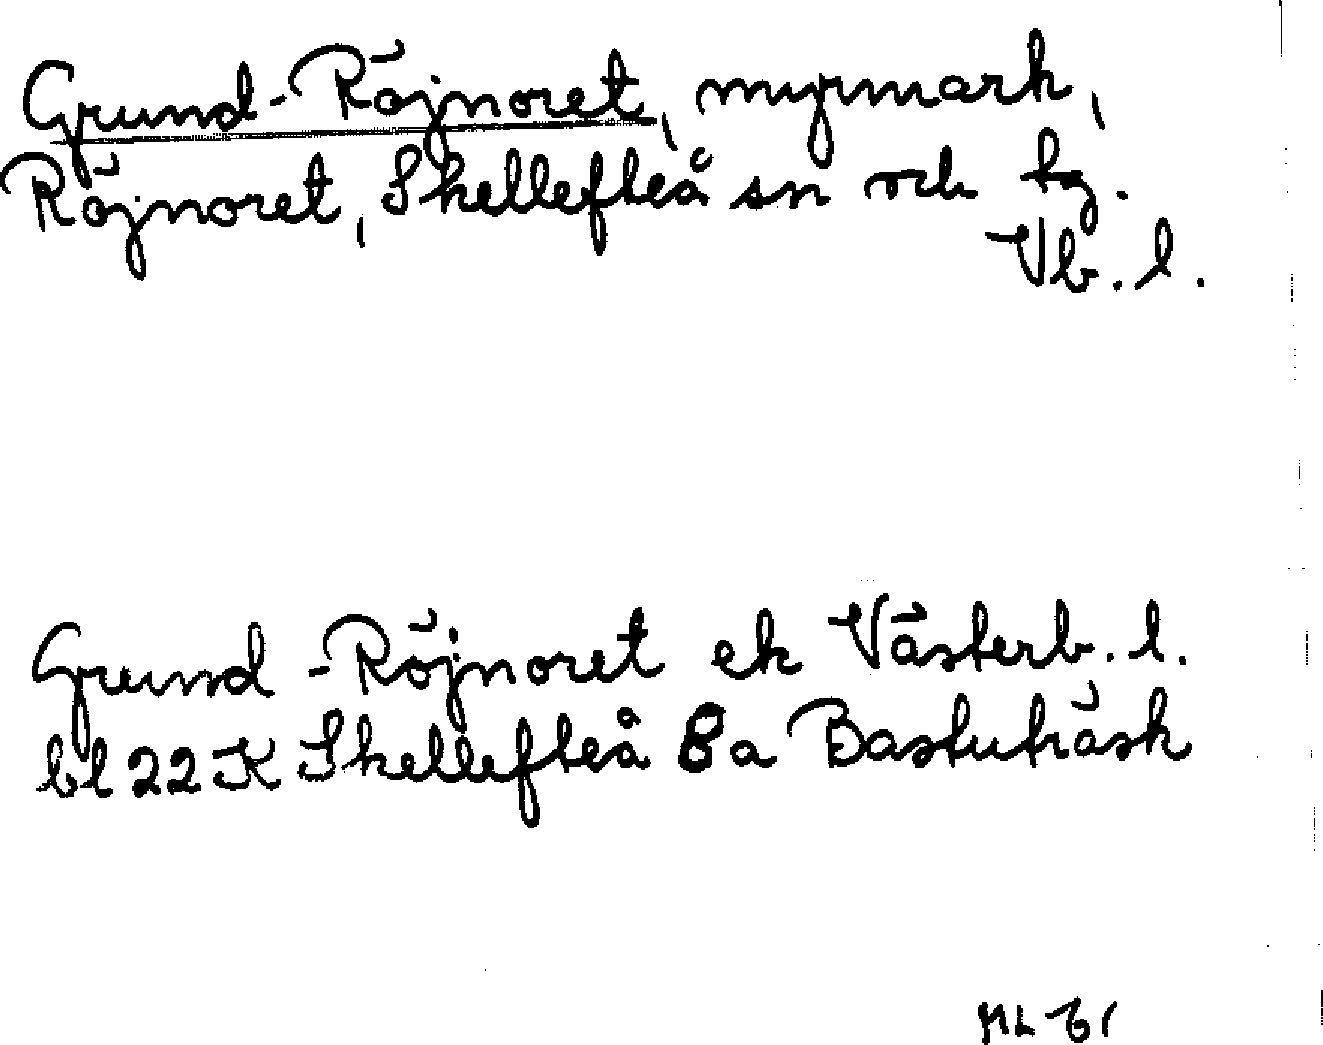 Grund-Röjnoret, myrmark,
Röjnoret, Skellefteå sn och tg.
Vb. l.
Grund-Röjnoret ek Västerb. l.
bl 22 K Skellefteå 8a Bastuträsk
ML 61